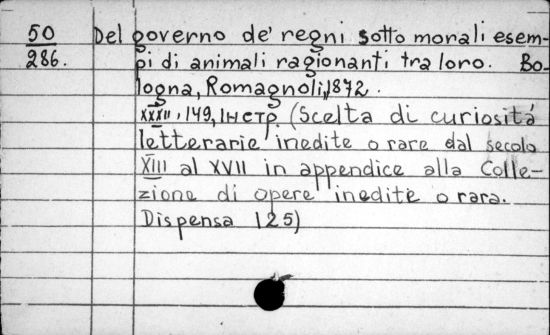 50
286.
Del governo de' regni sotto morali esem-
pi di animali ragionanti tra loro. Bo-
logna, Romagnoli, 1872.
XXXII, 149, 1 нстр. (Scelta di curiositá
letterarie inedite o rare dal secolo
XIII al XVII in appendice alla Colle-
zione di opere inedite o rara.
Dispensa 125)